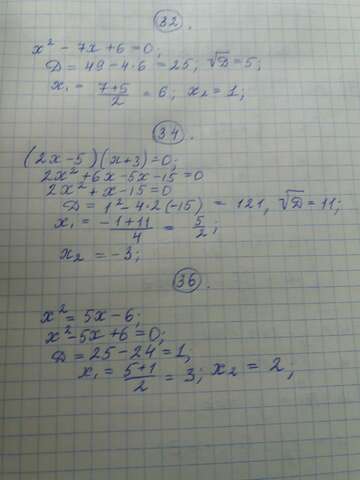 32.
x² - 7x + 6 = 0;
D = 49 - 4·6 = 25; √D = 5;
x₁ = (7+5)/2 = 6; x₂ = 1;
34.
(2x-5)(x+3) = 0;
2x² + 6x - 5x - 15 = 0
2x² + x - 15 = 0
D = 1² - 4·2(-15) = 121, √D = 11;
x₁ = (-1+11)/4 = 5/2;
x₂ = -3;
36.
x² = 5x - 6;
x² - 5x + 6 = 0;
D = 25 - 24 = 1;
x₁ = (5+1)/2 = 3; x₂ = 2;